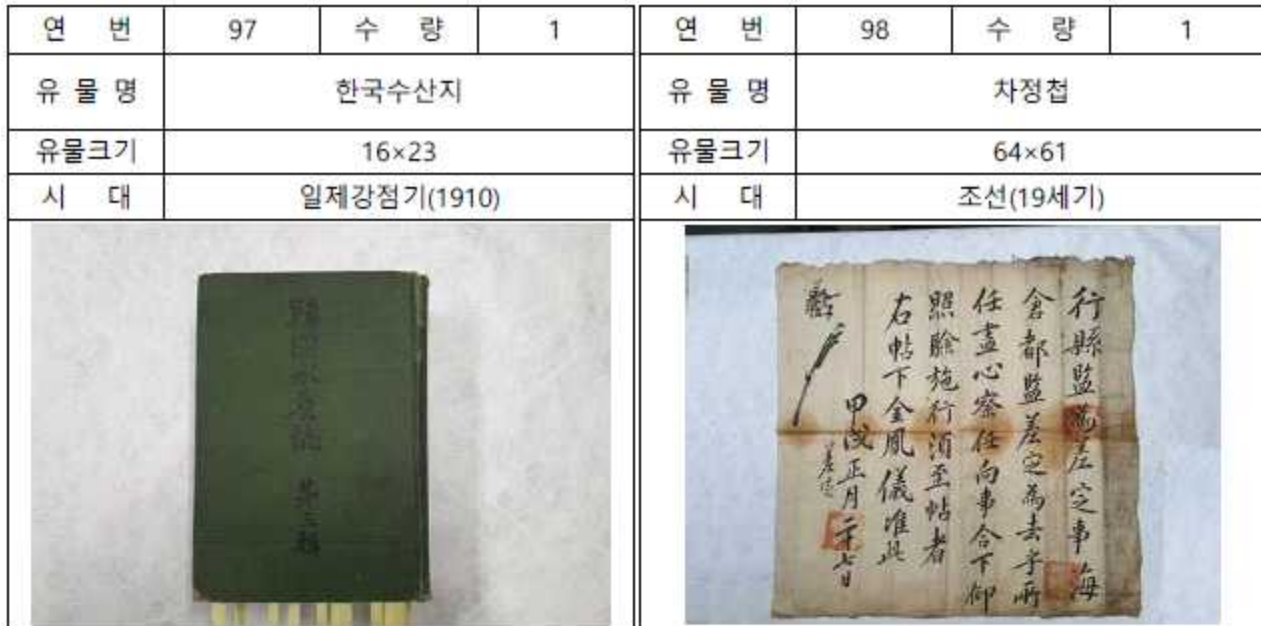 연 번 97 수 량 1
유 물 명 한국수산지
유물크기 16×23
시 대 일제강점기(1910)
韓國水産誌 第三輯
연 번 98 수 량 1
유 물 명 차정첩
유물크기 64×61
시 대 조선(19세기)
行縣監爲差定事海
倉都監差定爲去乎所
任盡心察任向事合下仰
照驗施行須至帖者
右帖下金鳳儀准此
甲戌正月二十七日
差定